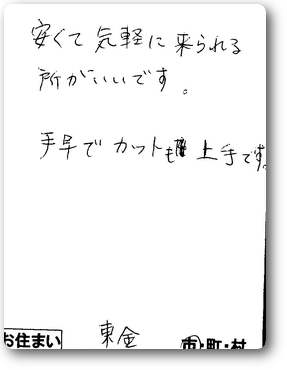 安くて気軽に来られる
所がいいです。
手早でカットも上手です。
お住まい 東金 市・町・村